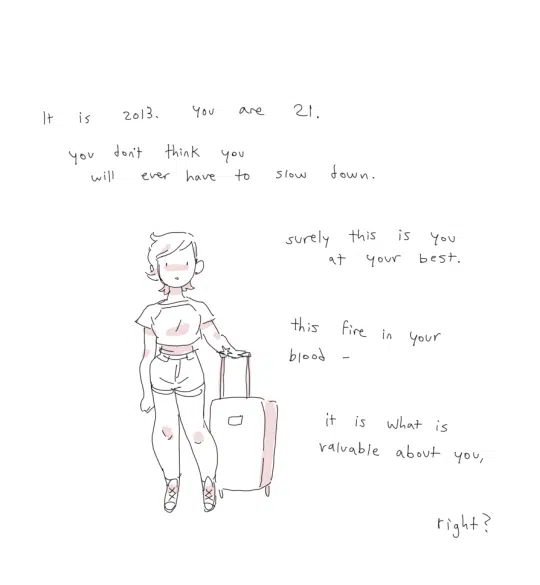 It is 2013. you are 21.
you don't think you
will ever have to slow down.
surely this is you
at your best.
this fire in your
blood -
it is what is
valuable about you,
right?